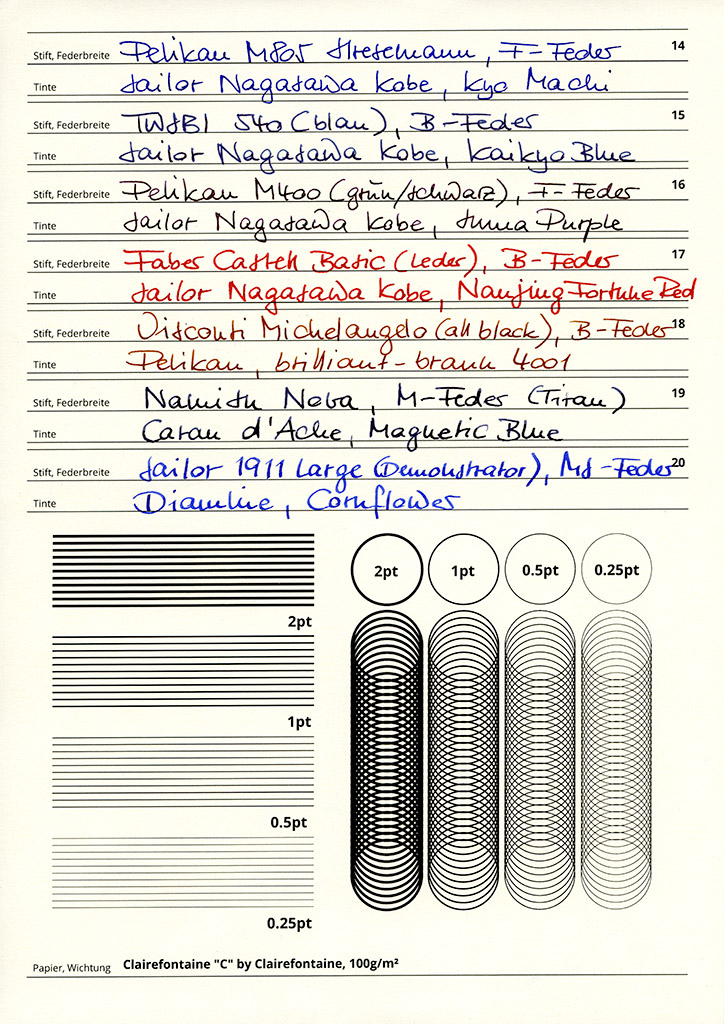 Stift, Federbreite Pelikan M805 Stresemann, F-Feder 14
Tinte Sailor Nagasawa Kobe, Kyo Machi
Stift, Federbreite TWSBI 540 (blau), B-Feder 15
Tinte Sailor Nagasawa Kobe, Kaikyo Blue
Stift, Federbreite Pelikan M400 (grün/schwarz), F-Feder 16
Tinte Sailor Nagasawa Kobe, Suma Purple
Stift, Federbreite Faber Castell Basic (Leder), B-Feder 17
Tinte Sailor Nagasawa Kobe, Nanjing Fortune Red
Stift, Federbreite Visconti Michelangelo (all black), B-Feder 18
Tinte Pelikan, brilliant-braun 4001
Stift, Federbreite Namisu Nova, M-Feder (Titan) 19
Tinte Caran d'Ache, Magnetic Blue
Stift, Federbreite Sailor 1911 Large (Demonstrator), MS-Feder 20
Tinte Diamine, Cornflower
2pt 1pt 0.5pt 0.25pt
2pt
1pt
0.5pt
0.25pt
Papier, Wichtung Clairefontaine "C" by Clairefontaine, 100g/m²